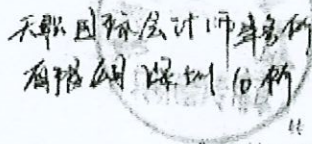 天职国际会计师事务所
有限公司深圳分所